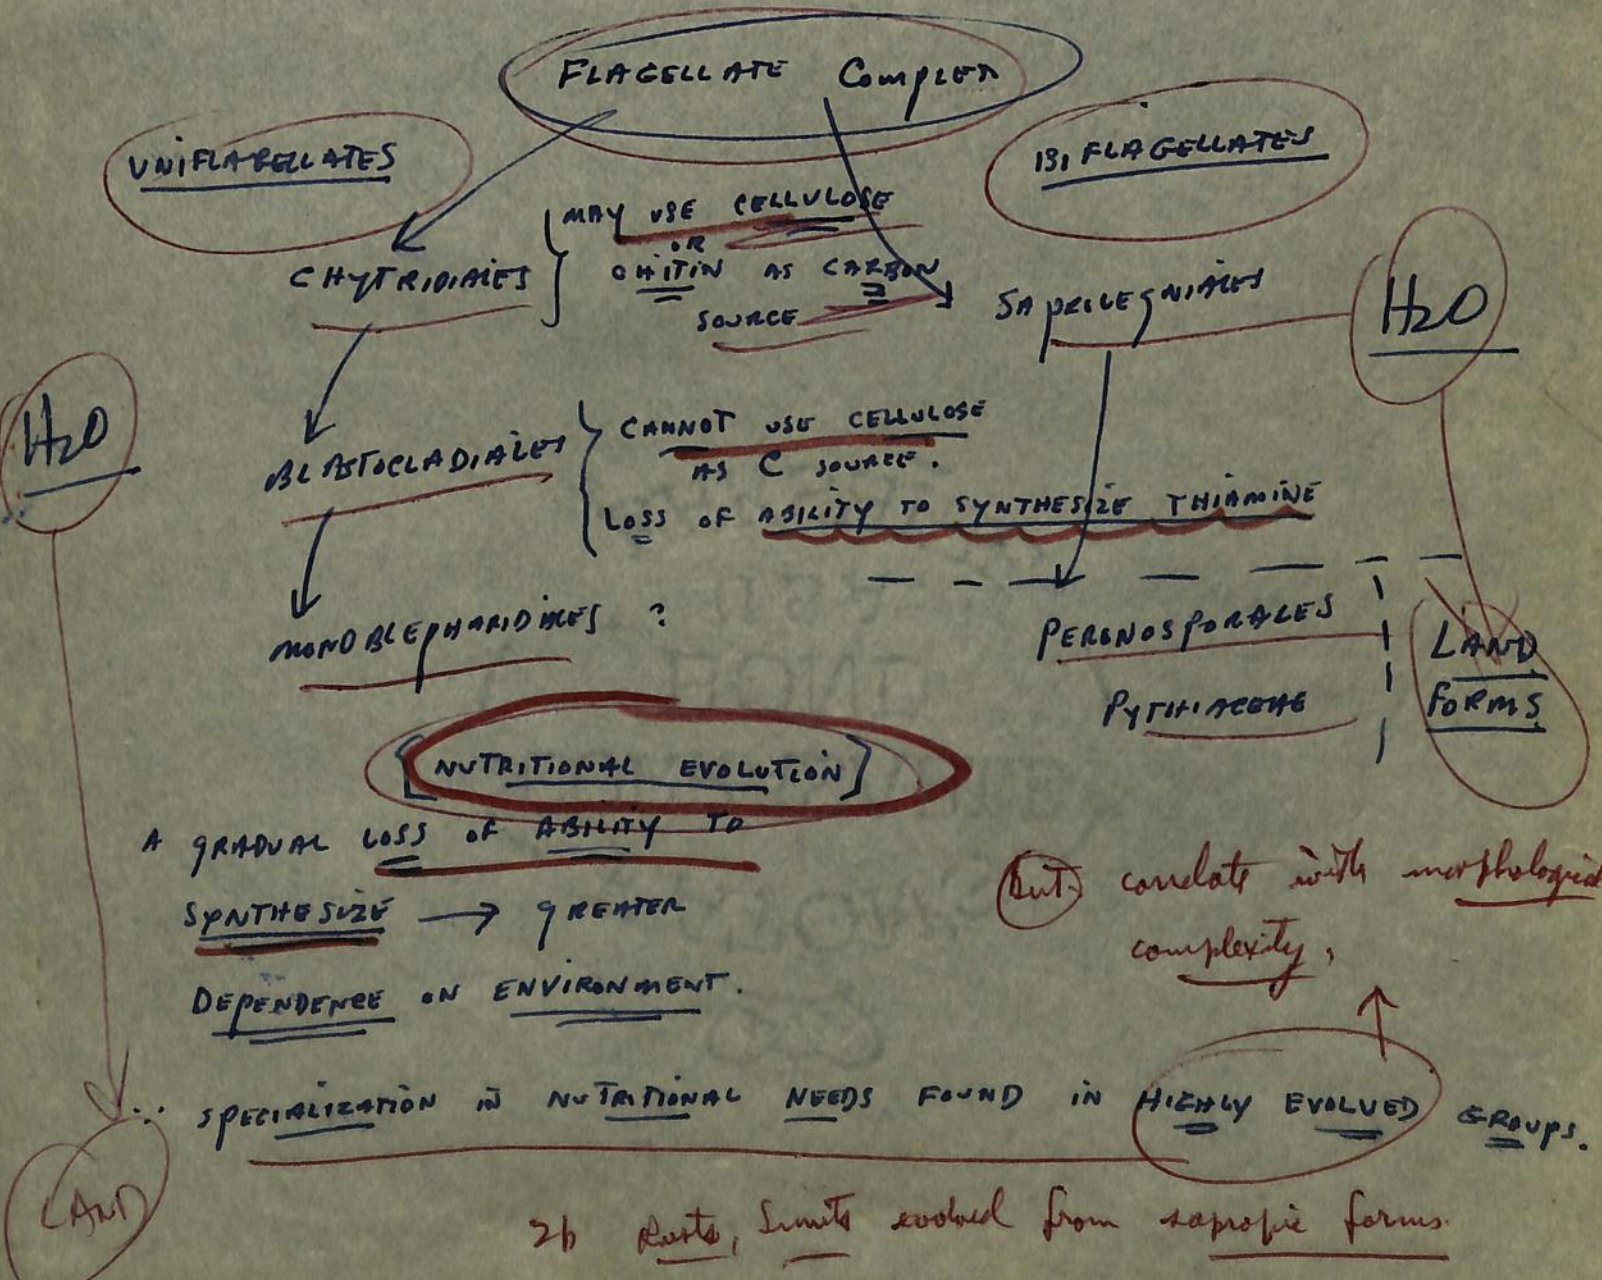 FLAGELLATE COMPLEX
UNIFLAGELLATES
BIFLAGELLATES
MAY USE CELLULOSE
OR
CHYTRIDIALES
CHITIN AS CARBON
SOURCE
SAPRILEGNIALES
H2O
H2O
CANNOT USE CELLULOSE
BLASTOCLADIALES
AS C SOURCE.
LOSS OF ABILITY TO SYNTHESIZE THIAMINE
MONOBLEPHARIDALES ?
PERONOSPORALES
LAND
FORMS
PYTHIACEAE
[NUTRITIONAL EVOLUTION]
A GRADUAL LOSS OF ABILITY TO
SYNTHESIZE → GREATER
DEPENDENCE ON ENVIRONMENT.
But correlate with morphological
complexity,
∴ SPECIALIZATION IN NUTRITIONAL NEEDS FOUND IN HIGHLY EVOLVED GROUPS.
LAND
Rusts, Smuts evolved from sapropic forms.